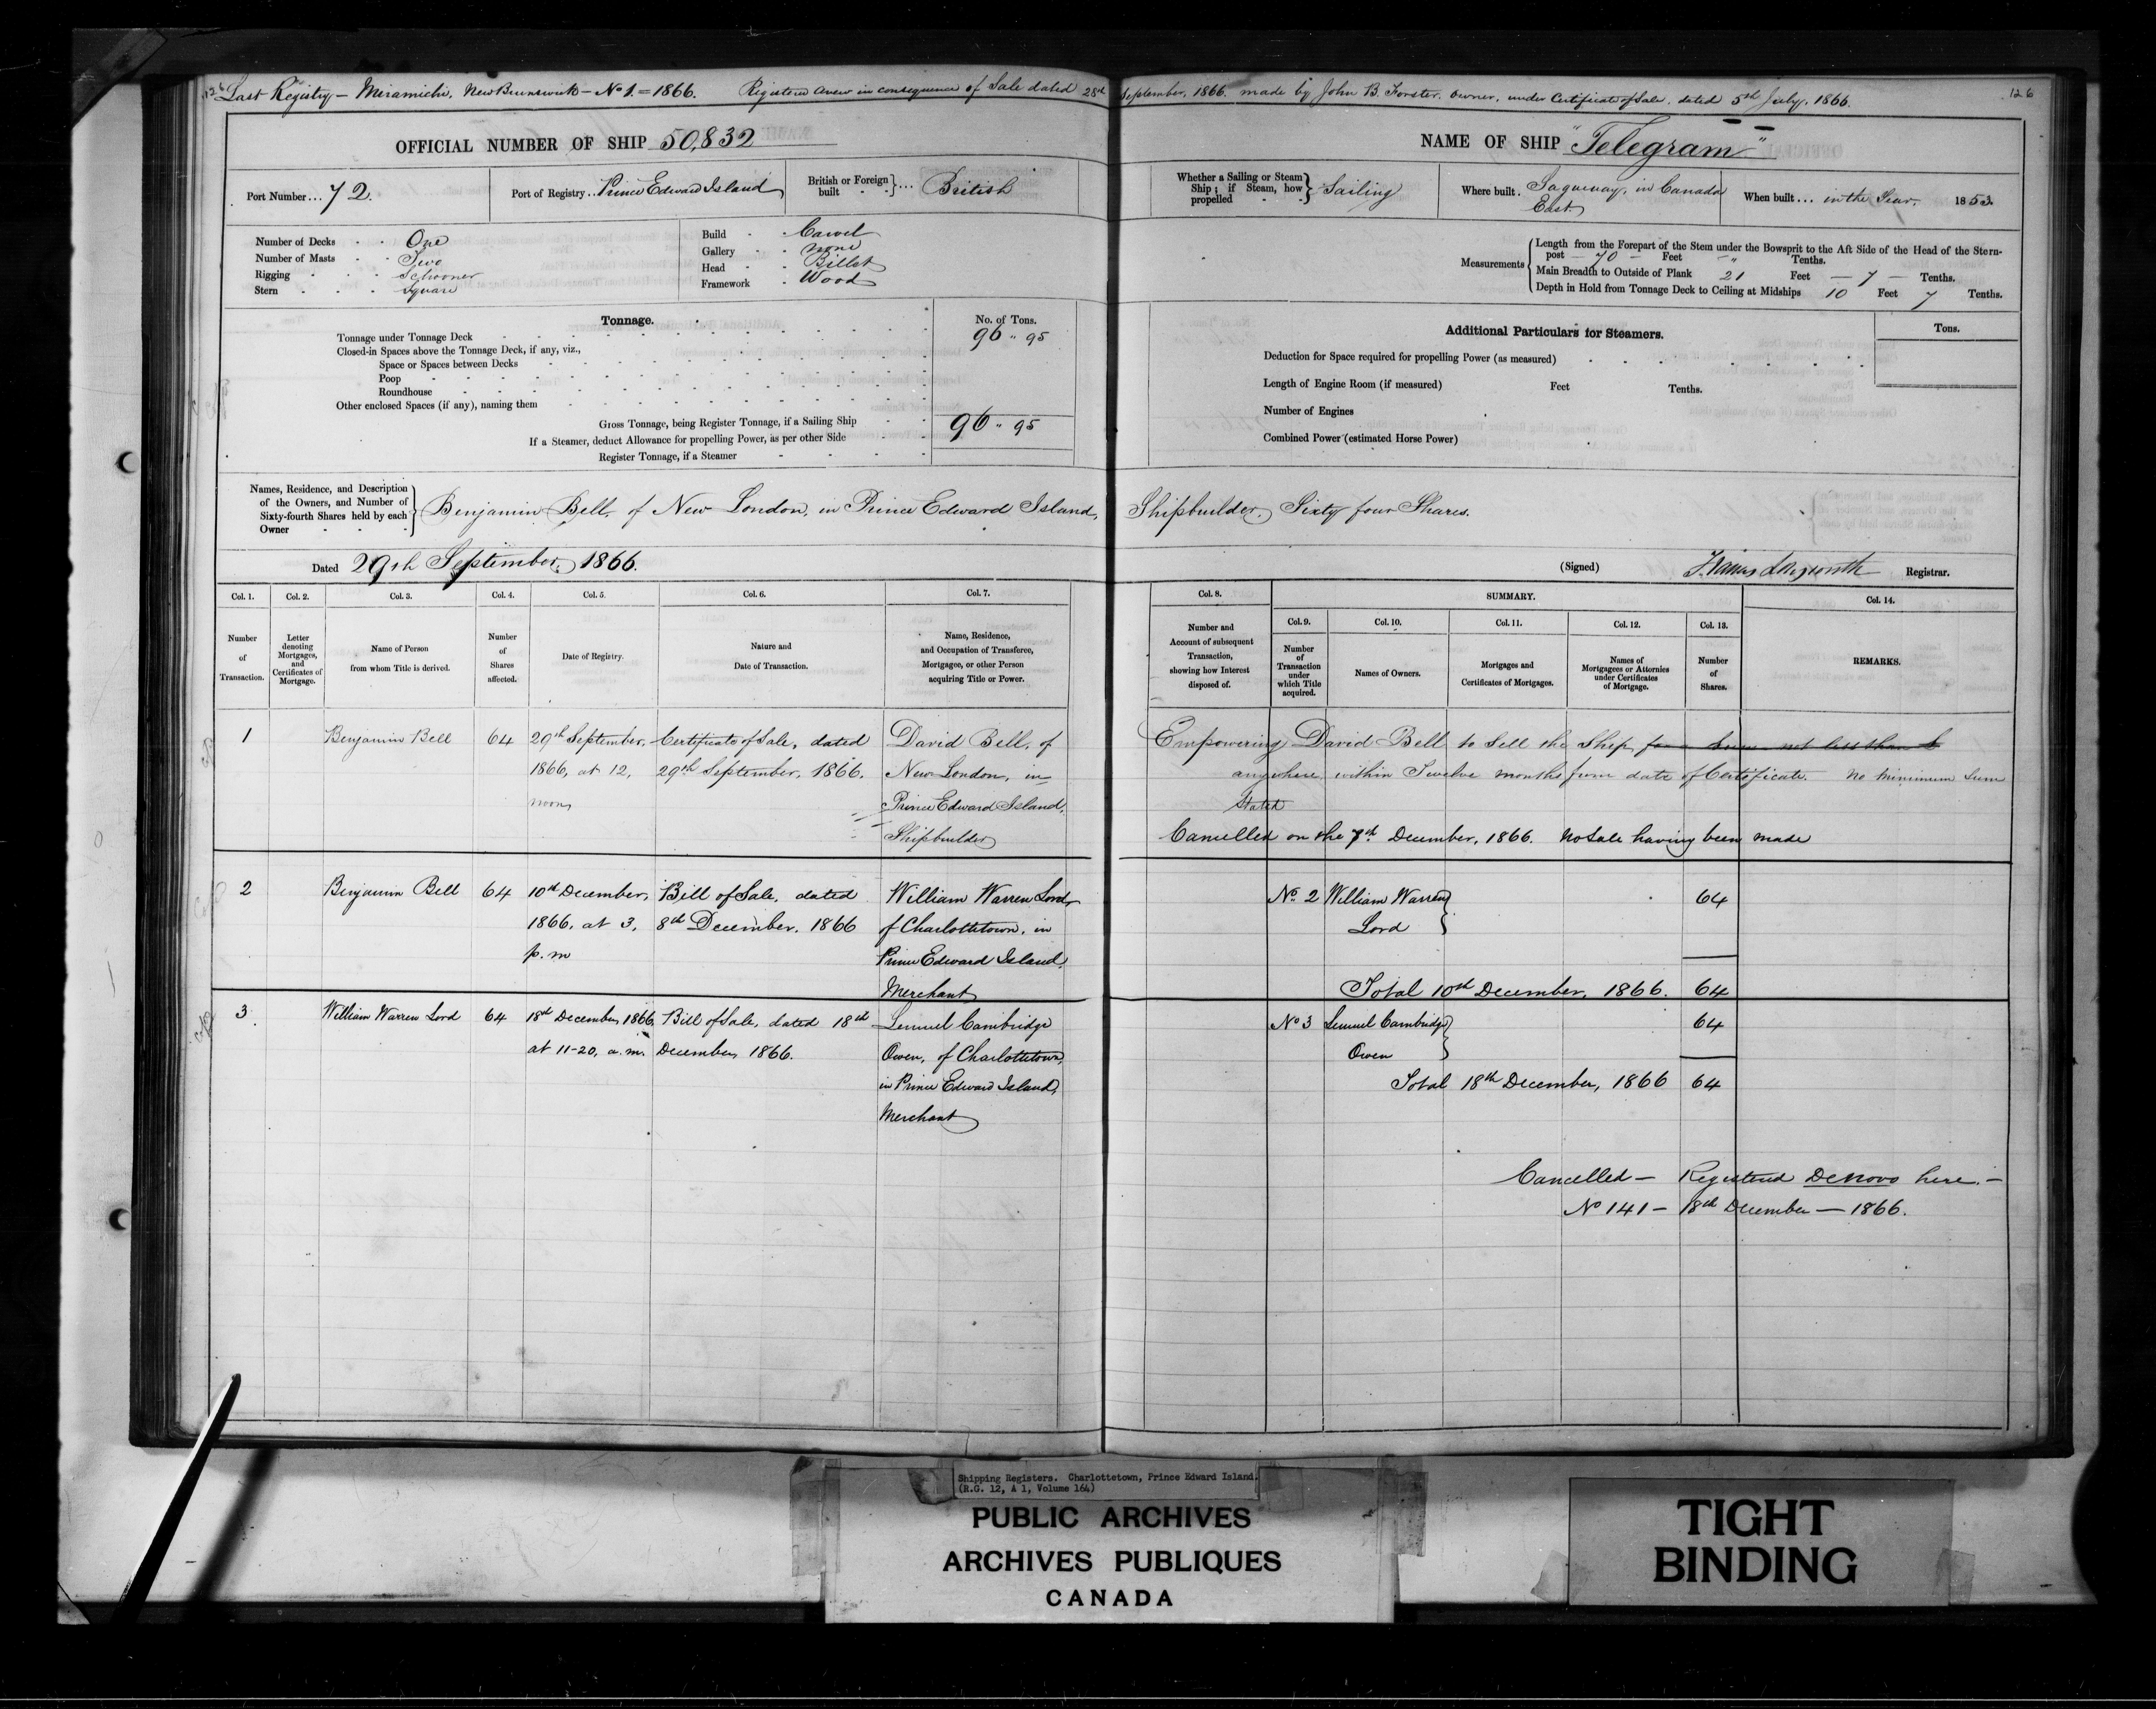 126 Last Registry — Miramichi, New Brunswick — No 1. = 1866. Registered anew in consequence of Sale dated 28th September, 1866. made by John B. Forster. Owner, under Certificate of Sale. dated 5th July, 1866. 126
OFFICIAL NUMBER OF SHIP 50,832
Port Number... 72.
Port of Registry.. Prince Edward Island
British or Foreign built } ... British
Number of Decks One
Number of Masts Two
Rigging Schooner
Stern Square
Build Carvel
Gallery none
Head Billet
Framework Wood
Tonnage.
No. of Tons.
Tonnage under Tonnage Deck 96 " 95
Closed-in Spaces above the Tonnage Deck, if any, viz.,
Space or Spaces between Decks
Poop
Roundhouse
Other enclosed Spaces (if any), naming them
Gross Tonnage, being Register Tonnage, if a Sailing Ship 96 " 95
If a Steamer, deduct Allowance for propelling Power, as per other Side
Register Tonnage, if a Steamer
NAME OF SHIP "Telegram"
Whether a Sailing or Steam Ship; if Steam, how propelled } Sailing
Where built. Saguenay, in Canada East.
When built ... in the Year. 1853.
Measurements { Length from the Forepart of the Stem under the Bowsprit to the Aft Side of the Head of the Stern-
post — 70 — Feet — " Tenths.
Main Breadth to Outside of Plank 21 Feet — 7 — Tenths.
Depth in Hold from Tonnage Deck to Ceiling at Midships 10 Feet 7 Tenths.
Additional Particulars for Steamers.
Tons.
Deduction for Space required for propelling Power (as measured)
Length of Engine Room (if measured) Feet Tenths.
Number of Engines
Combined Power (estimated Horse Power)
Names, Residence, and Description
of the Owners, and Number of
Sixty-fourth Shares held by each
Owner
Benjamin Bell, of New London, in Prince Edward Island, Shipbuilder, Sixty four Shares.
Dated 29th September, 1866.
(Signed) Registrar.
Col. 1. Col. 2. Col. 3. Col. 4. Col. 5. Col. 6. Col. 7.
Number of Transaction.
Letter denoting Mortgages, and Certificates of Mortgage.
Name of Person from whom Title is derived.
Number of Shares affected.
Date of Registry.
Nature and Date of Transaction.
Name, Residence, and Occupation of Transferee, Mortgagee, or other Person acquiring Title or Power.
Col. 8. SUMMARY. Col. 14.
Col. 9. Col. 10. Col. 11. Col. 12. Col. 13.
Number and Account of subsequent Transaction, showing how Interest disposed of.
Number of Transaction under which Title acquired.
Names of Owners.
Mortgages and Certificates of Mortgages.
Names of Mortgagees or Attornies under Certificates of Mortgage.
Number of Shares.
REMARKS.
1 Benjamin Bell 64 29th September, Certificate of Sale, dated David Bell, of
1866, at 12, 29th September, 1866. New London, in
noon Prince Edward Island,
Shipbuilder
Empowering David Bell to Sell the Ship for a Sum not less than £
anywhere, within Twelve months from date of Certificate. No Minimum Sum
Stated
Cancelled on the 7th December, 1866. No Sale having been made
2 Benjamin Bell 64 10th December, Bill of Sale, dated William Warren Lord,
1866, at 3, 8th December, 1866 of Charlottetown, in
p.m Prince Edward Island,
Merchant
No. 2 William Warren 64
Lord
Total 10th December, 1866. 64
3. William Warren Lord 64 18th December 1866, Bill of Sale, dated 18th Lemuel Cambridge
at 11-20, a.m. December, 1866. Owen, of Charlottetown,
in Prince Edward Island,
Merchant
No 3 Lemuel Cambridge 64
Owen
Total 18th December, 1866 64
Cancelled — Registered De Novo here. —
No 141 — 18th December — 1866.
Shipping Registers. Charlottetown, Prince Edward Island.
(R.G. 12, A 1, Volume 164)
PUBLIC ARCHIVES
ARCHIVES PUBLIQUES
CANADA
TIGHT
BINDING